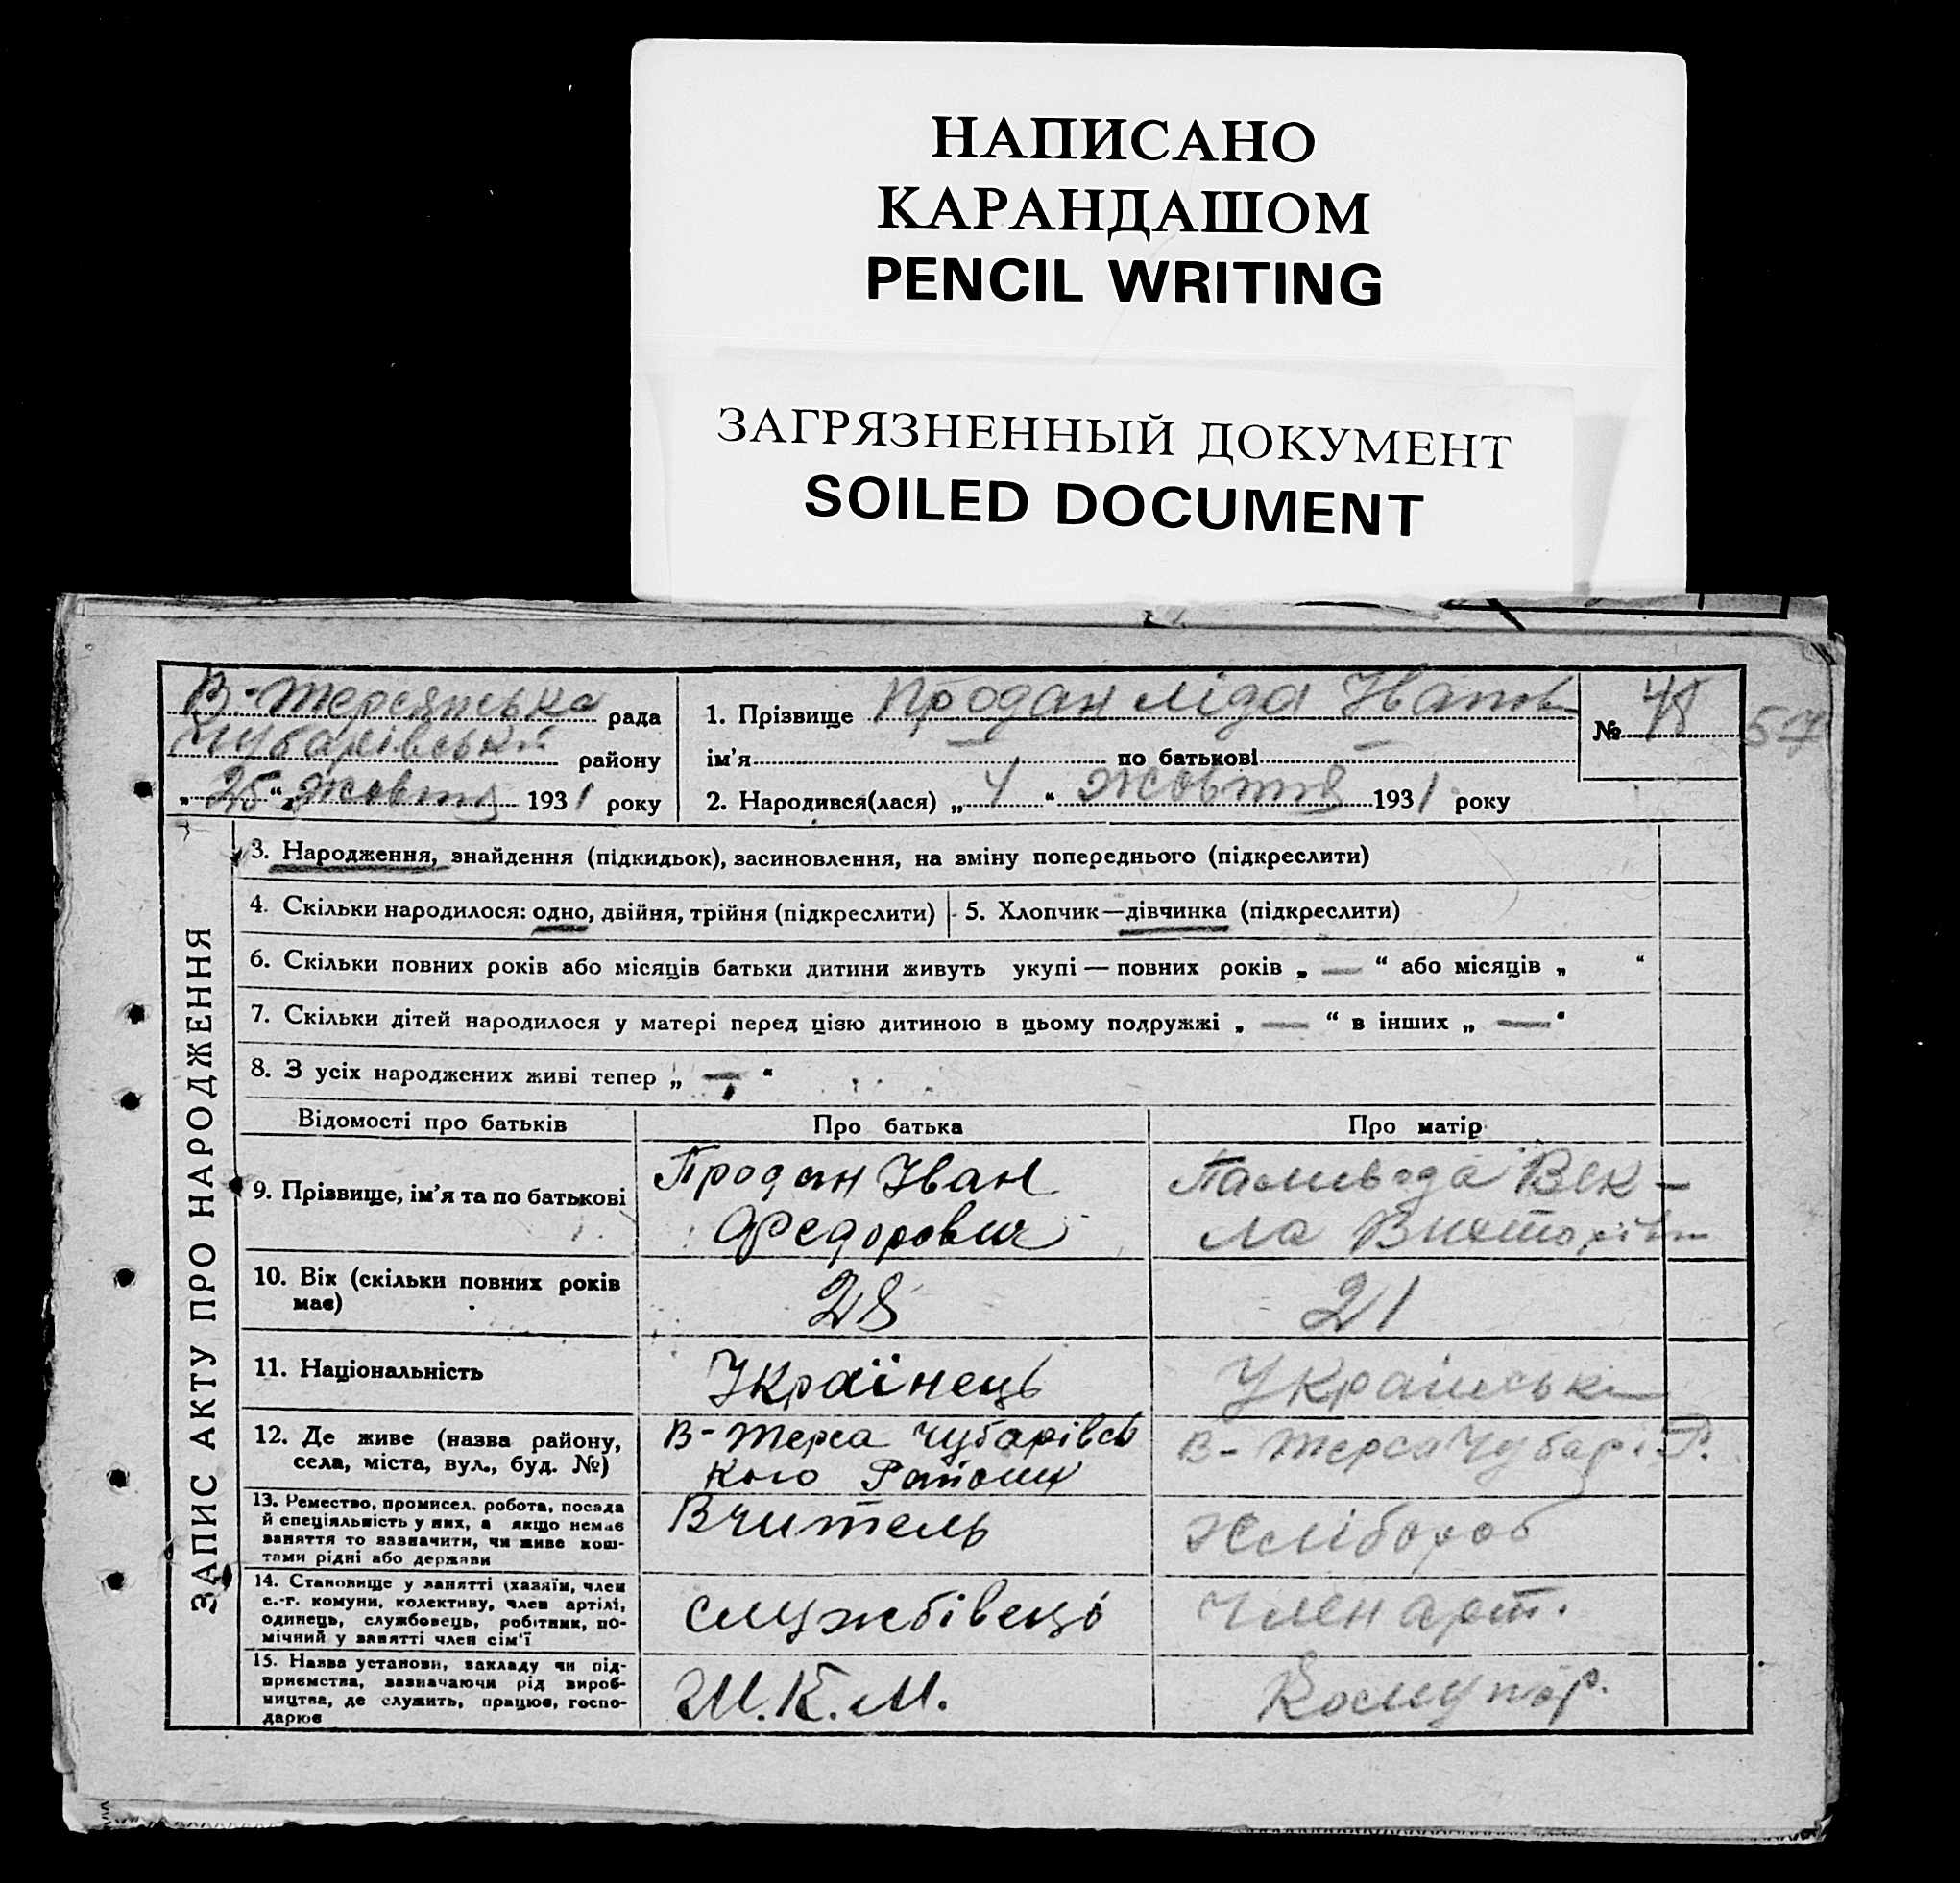 НАПИСАНО
КАРАНДАШОМ
PENCIL WRITING
ЗАГРЯЗНЕННЫЙ ДОКУМЕНТ
SOILED DOCUMENT
В-Терсянська рада
Чубарівський району
„25“ Жовтня 1931 року
1. Прізвище Продан Ліда Іванов
ім'я — по батькові —
2. Народився(лася) „4“ Жовтня 1931 року
№ 48
57
ЗАПИС АКТУ ПРО НАРОДЖЕННЯ
3. Народження, знайдення (підкидьок), засиновлення, на зміну попереднього (підкреслити)
4. Скільки народилося: одно, двійня, трійня (підкреслити)
5. Хлопчик—дівчинка (підкреслити)
6. Скільки повних років або місяців батьки дитини живуть укупі — повних років „ — “ або місяців „ “
7. Скільки дітей народилося у матері перед цією дитиною в цьому подружжі „ — “ в інших „ — “
8. З усіх народжених живі тепер „ — “
Відомості про батьків Про батька Про матір
9. Прізвище, ім'я та по батькові
Продан Іван
Федорович
Век-
ла
10. Вік (скільки повних років
має)
28
21
11. Національність
Українець
Українська
12. Де живе (назва району,
села, міста, вул., буд. №)
В-Терса Чубарівсь
кого Району
В-Терса Чубарі Р.
13. Ремество, промисел, робота, посада
й спеціяльність у них, а якщо немає
заняття то зазначити, чи живе кош-
тами рідні або держави
Вчитель
Хлібороб
14. Становище у занятті (хазяїн, член
с.-г. комуни, колективу, член артілі,
одинець, службовець, робітник, по-
мічний у занятті член сім'ї
службівець
Член арт.
15. Назва установи, закладу чи під-
приємства, зазначаючи рід вироб-
ництва, де служить, працює, госпо-
дарює
Ш.К.М.